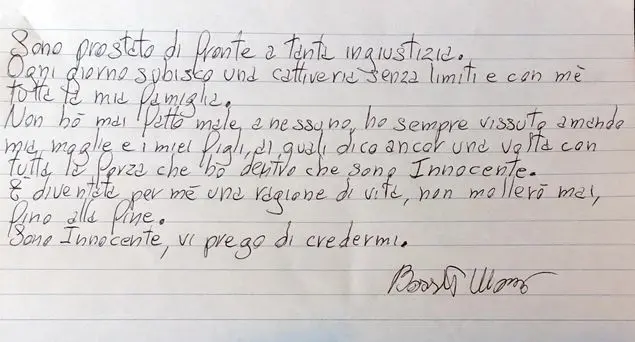 Sono prostato di fronte a tanta ingiustizia.
Ogni giorno subisco una cattiveria senza limiti e con mè
tutta la mia famiglia.
Non hò mai fatto male, a nessuno, ho sempre vissuto amando
mia, moglie e i miei figli, ai quali dico ancor una volta con
tutta la forza che hò dentro che sono Innocente.
È diventata per mè una ragione di vita, non mollerò mai,
fino alla fine.
Sono Innocente, vi prego di credermi.